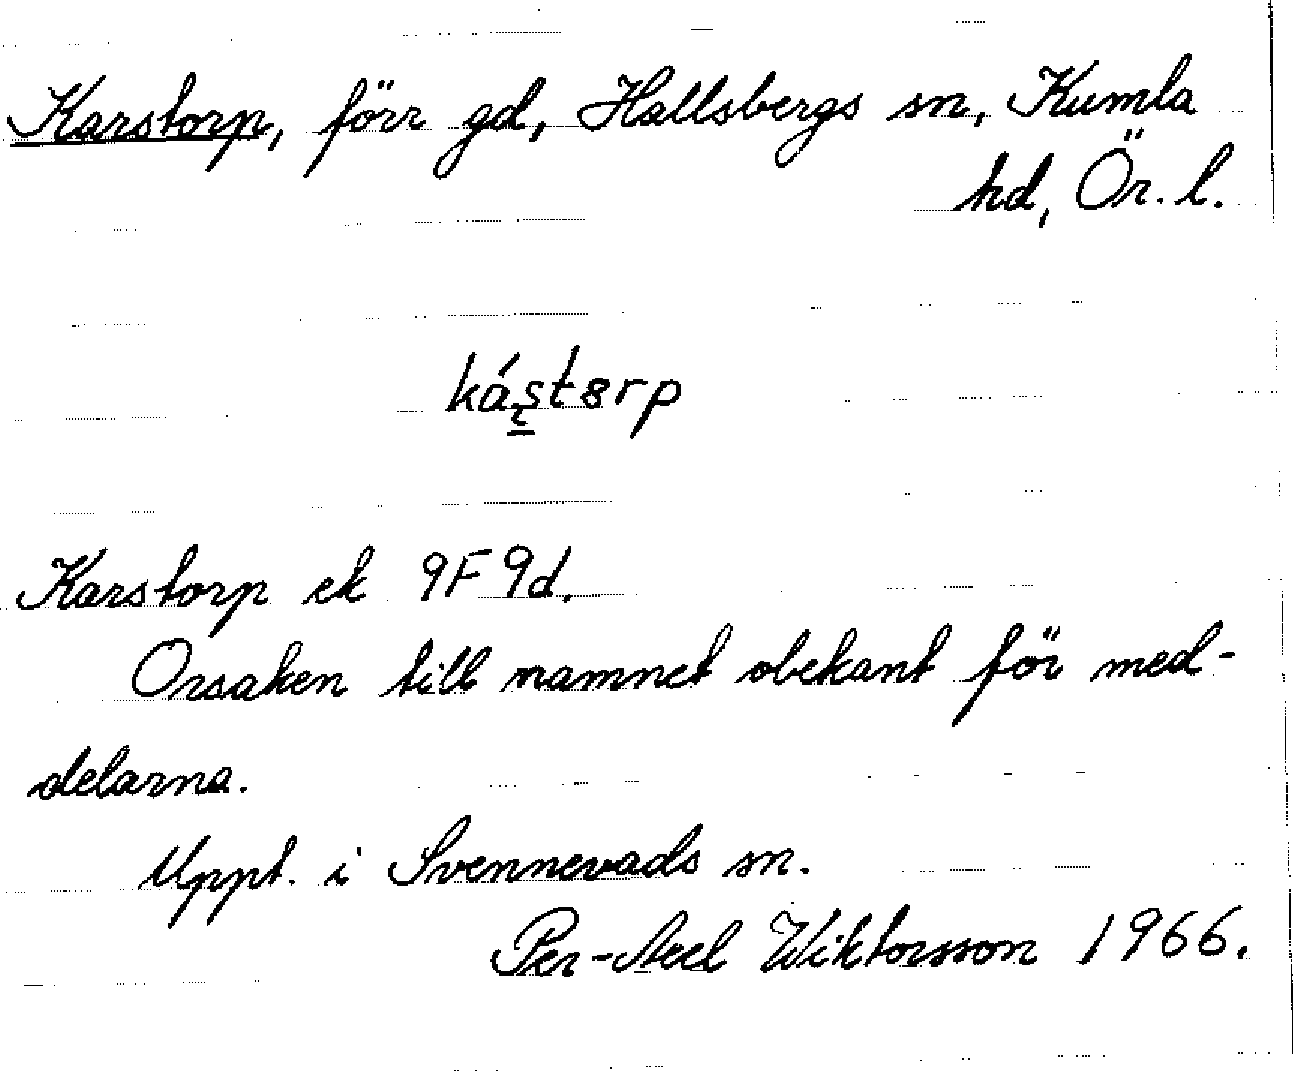 Karstorp, förr gd, Hallsbergs sn, Kumla
hd, Ör. l.
kás̨tȣrp
Karstorp ek 9F 9d.
Orsaken till namnet obekant för med-
delarna.
Uppt. i Svennevads sn.
Per-Axel Wiktorsson 1966.